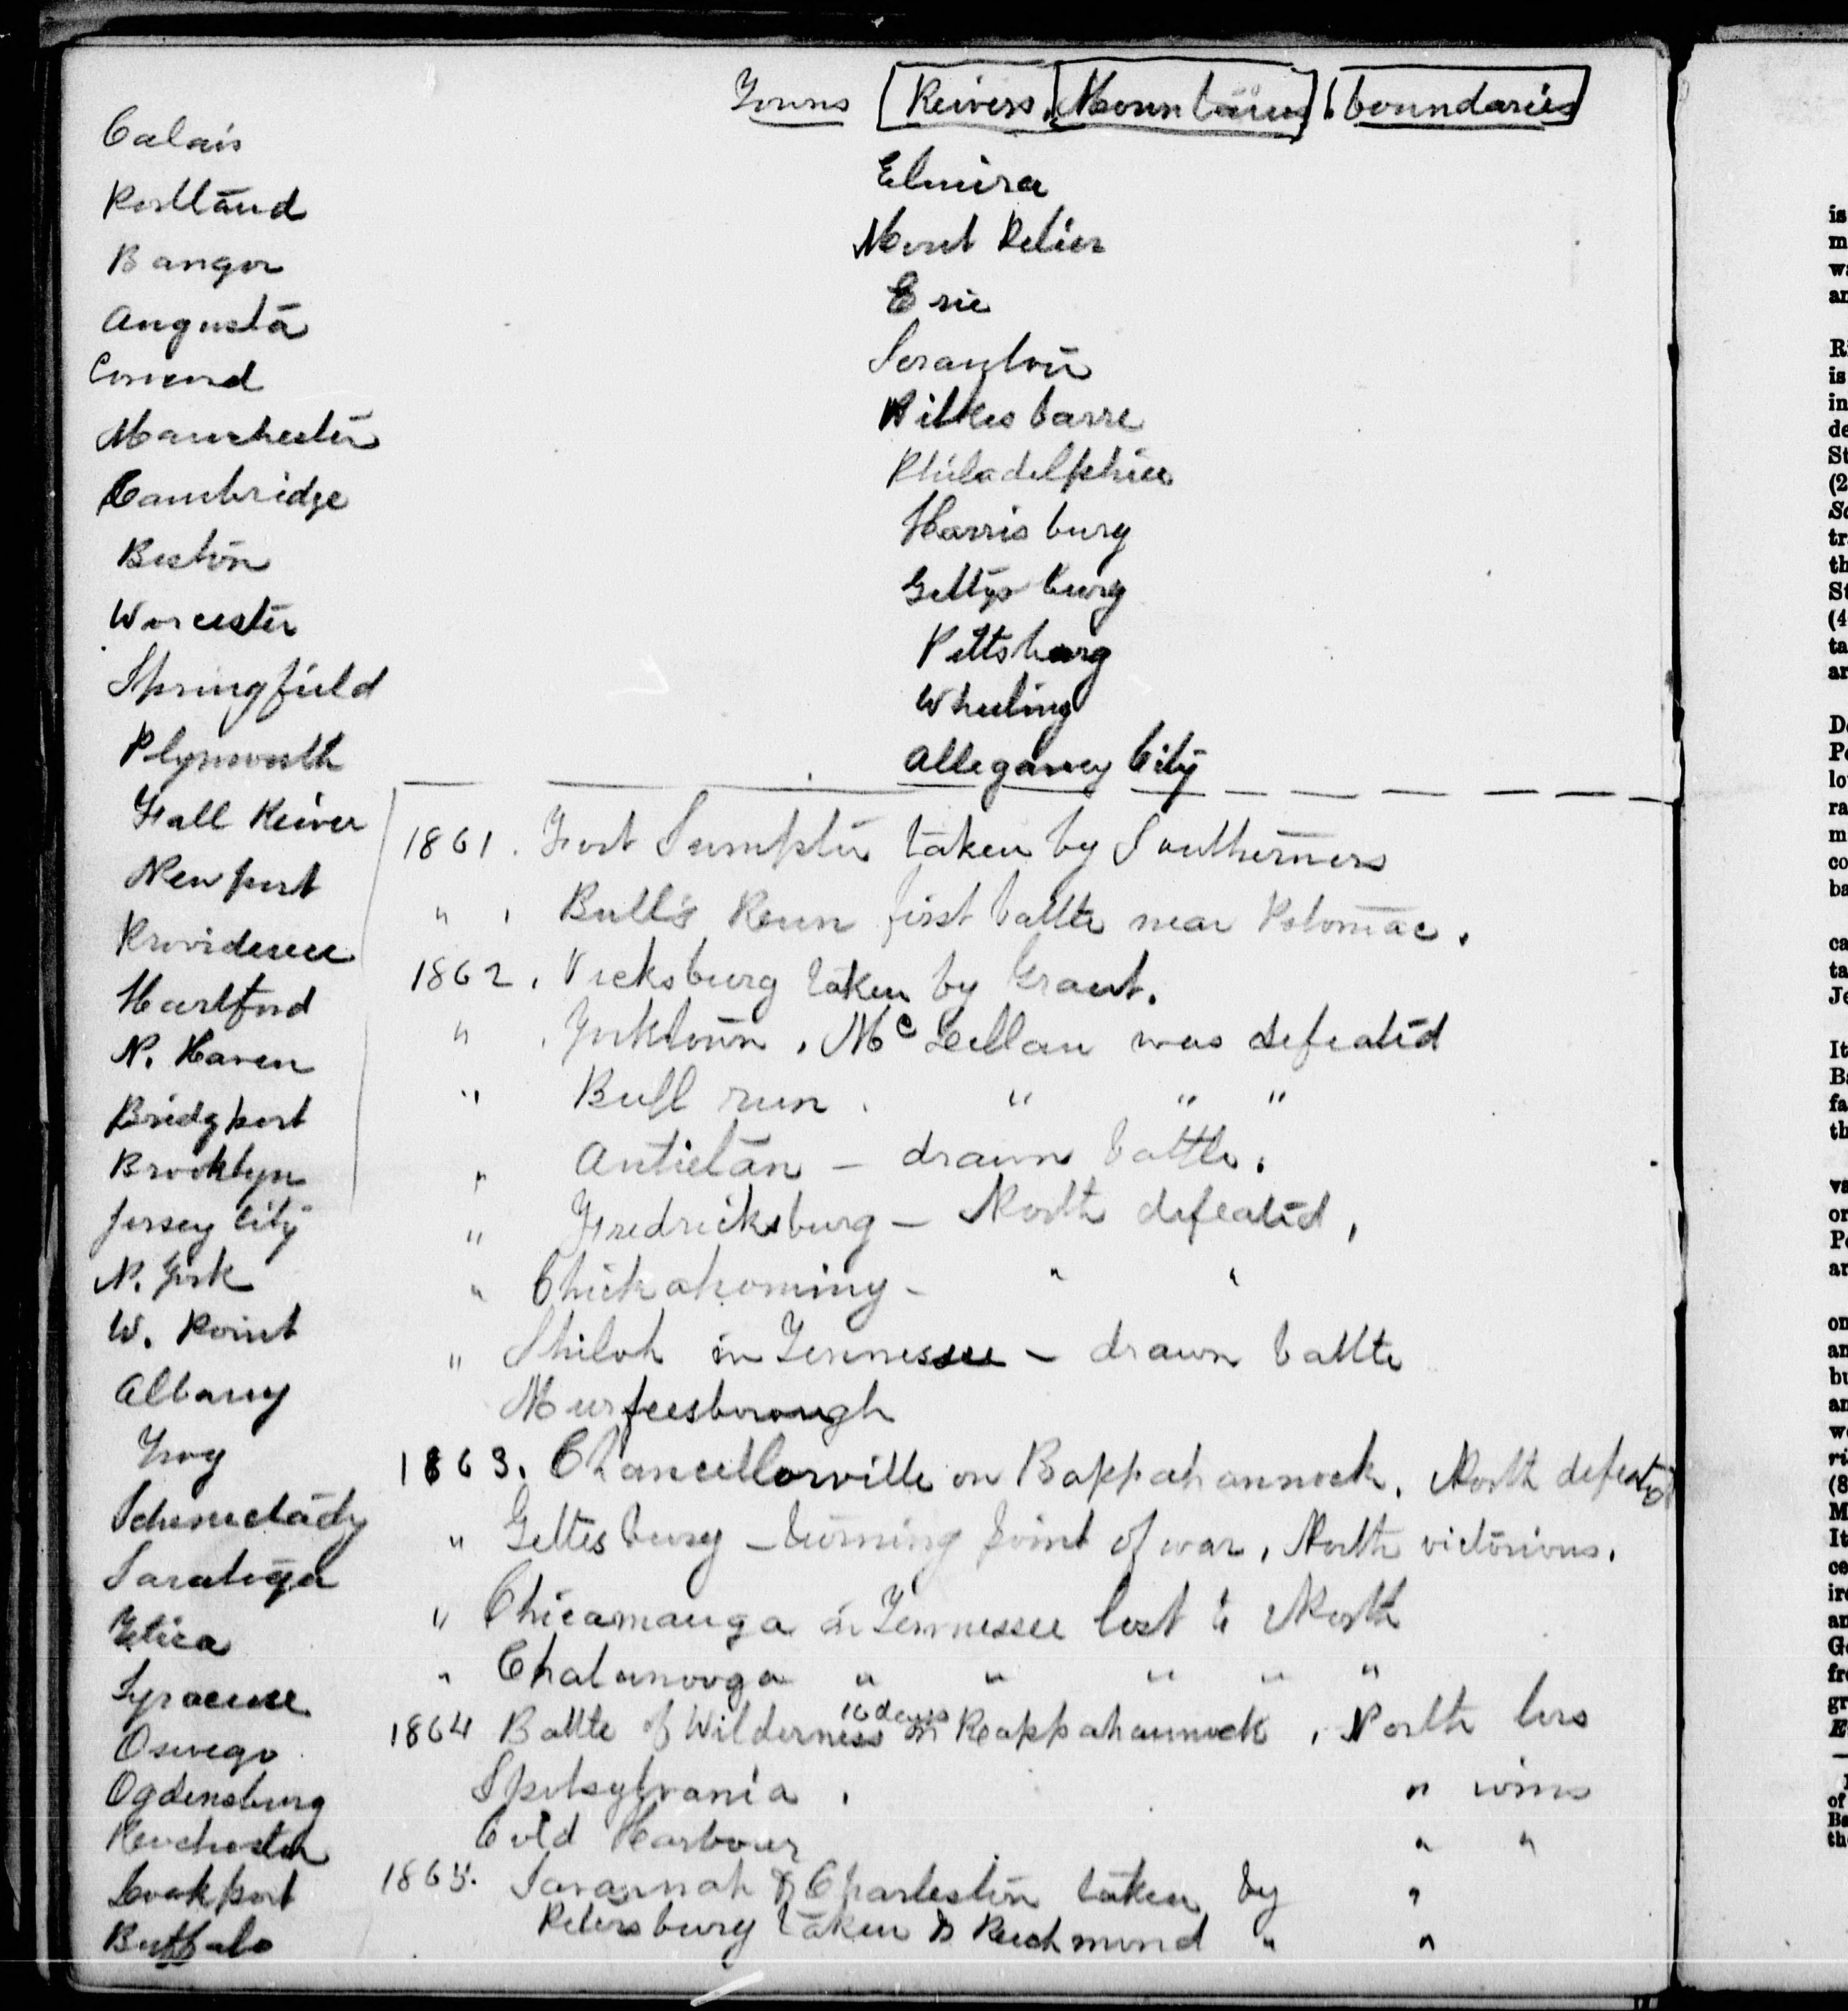 Towns Reivers, Mountains & boundaries
Calais
Portland
Bangor
Augusta
Concord
Manchester
Cambridge
Boston
Worcester
Springfield
Plymouth
Fall Reiver
New port
Providence
Hartford
N. Haven
Bridgport
Brooklyn
Jersey City
N. York
W. Point
Albany
Troy
Schenectady
Saratoga
Utica
Syracuse
Oswego
Ogdensburg
Reuchester
Lockport
Buffalo
Elmira
Mont Pelier
Erie
Scranton
Wilkes barre
Philadelphia
Harris burg
Gettys burg
Pittsburg
Wheeling
Allegany City
1861. Fort Sumpter taken by Southerners
" , Bull's Reun first battle near Potomac.
1862. Vicksburg taken by Grant.
" . Yorktown. McLellan was defeated
" Bull run. " " "
" Antietan – drawn battle.
" Fredricksburg – North defeated,
" Chickahoming – " "
" Shiloh in Tennessee – drawn battle
Murfeesborough
1863. Chancellorville on Rappahannock. North defeated
" Gettesburg – turning point of war, North victorious.
" Chicamauga in Tennessee lost to North
" Chatanooga " " " " "
1864 Battle of Wilderness 16 days on Reappahannock, North loss
Spotsylvania. " wins
Cold Harbour " "
1865. Savannah & Charleston taken by "
Petersburg taken & Reichmond " "
is
m
wa
an
R
is
in
de
St
(2
So
tr
th
St
(4
ta
ar
De
Po
lo
ra
m
co
ba
ca
ta
Je
It
Ba
fa
th
va
or
Po
ar
on
an
bu
an
we
ri
(8
M
It
ce
ire
an
Ge
fro
gr
E
of
Ba
the